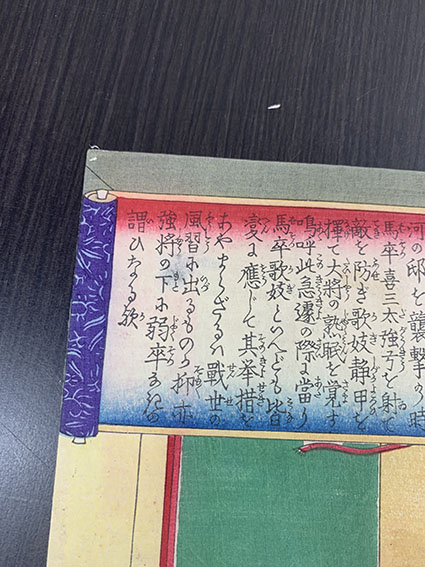 河の邸を襲撃の時
馬卒喜三太強子を射て
敵を防ぎ歌妓静甲を
擇て大将の熟眠を覚す
嗚呼此急遽の際に当り
馬卒歌妓といへども皆
意に應じて其挙措を
あやまらざるハ戦世の
風習に出るものか抑亦
強将の下に弱卒なきの
謂ひなる歟